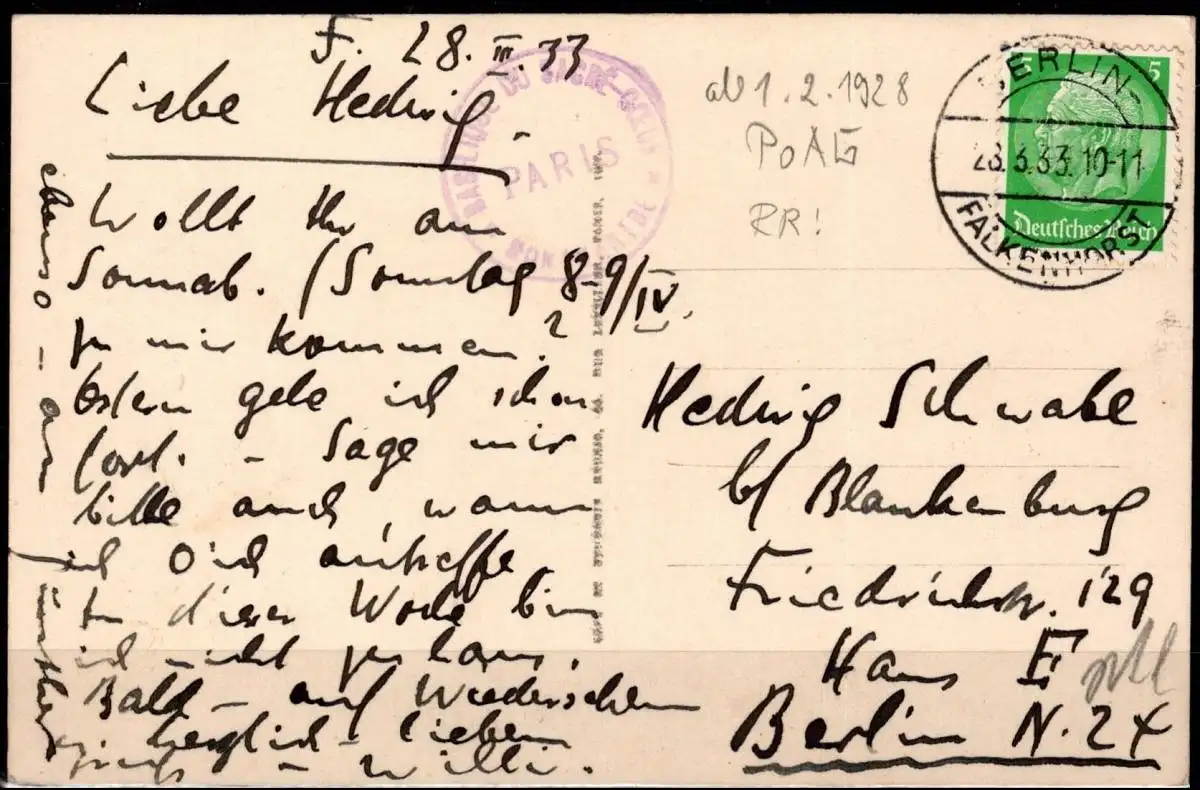 F. 28.III.33
Liebe Hedwig.
Wollt Ihr am
Sonnab./Sonntag 8-9/IV.
zu mir kommen?
Ostern gehe ich schon
fort. - Sage mir
bitte auch, wann
ich Dich antreffe
In dieser Woche bin
ich nicht zu haus.
Bald - auf Wiedersehen
herzlich - lieben
Gruß - Willi.
ebenso - an
Günther
BASILIQUE DU SACRÉ-COEUR
PARIS
MONTMARTRE
ab 1.2.1928
PoAG
RR!
5 5
Deutsches Reich
BERLIN-
28.3.33.10-11
FALKENHORST
Hedwig Schwabe
b/ Blankenburg
Friedrichstr. 129
Haus E
Berlin N.24